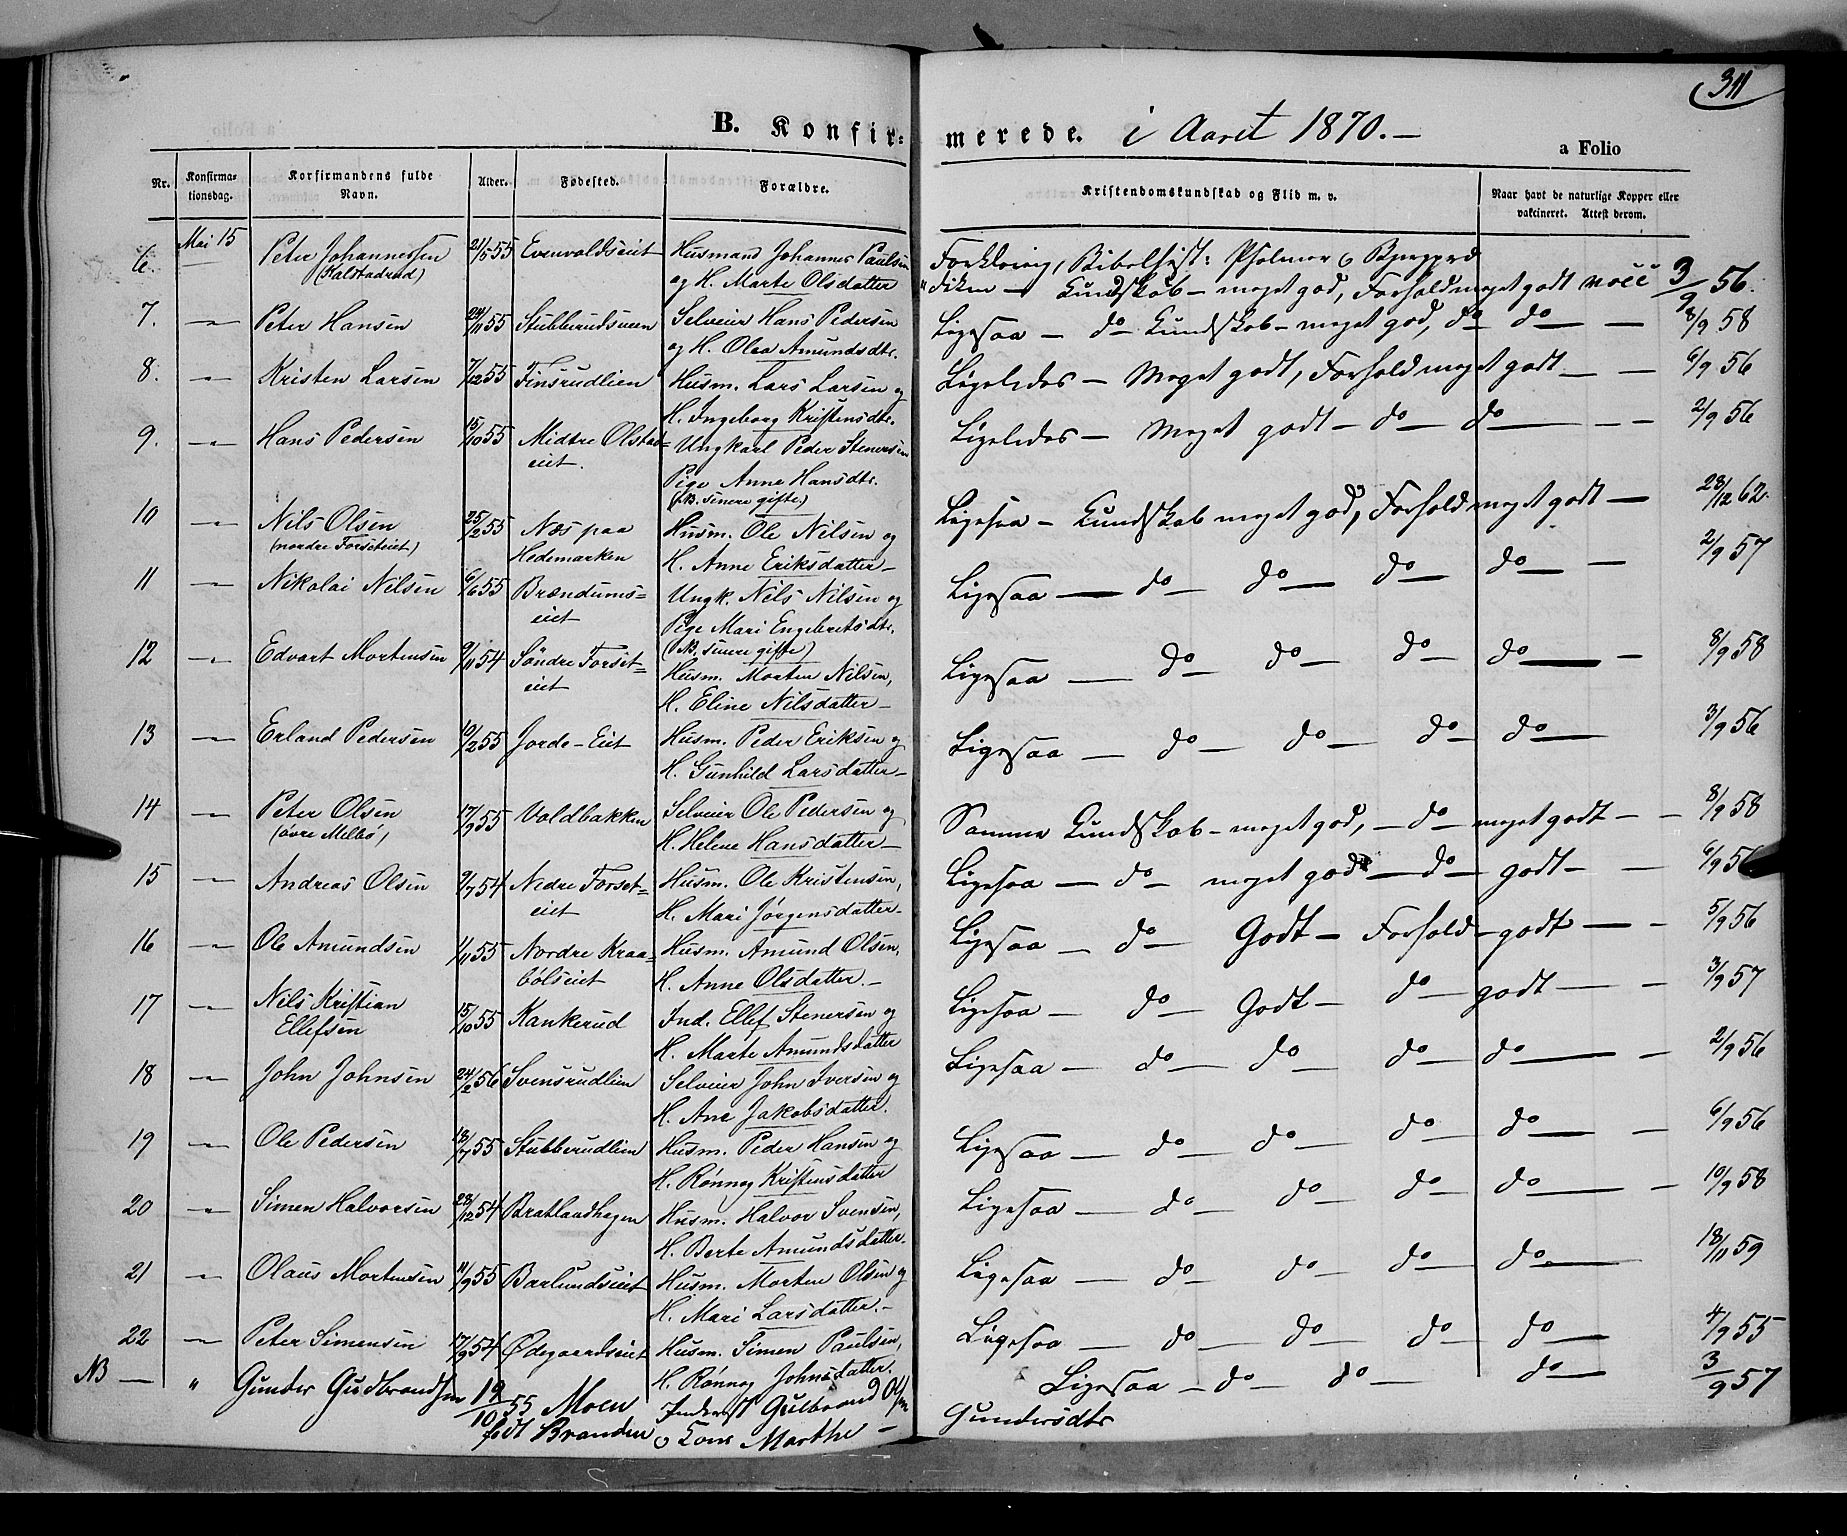 311
B. Konfirmerede. i Aaret 1870. —
a Folio
Nr. Konfirmationsdag. Korfirmandens fulde Navn. Alder. Fødested. Forældre. Kristendomskundskab og Flid m. v. Naar havt de naturlige Kopper eller vakcineret. Attest derom.
6. Mai 15 Peter Johannessen 21/5 55 Evenvoldseiet Husmand Johannes Paulsen Forklaring, Bibelhist: Psalmer
(Kalstadrud) og H. Marte Olsdatter Kundskab – meget god, Forhold meget godt vacc 3/9 56.
7. — Peter Hansen 24/11 55 Stubberudsveen Selveier Hans Pedersen Ligesaa — do Kundskab – meget god, do do — 8/9 58
og H. Olea Amundsdtr.
8. — Kristen Larsen 7/12 55 Finsrudlien Husm. Lars Larsen og Ligeledes — Meget godt, Forhold meget godt — — 6/9 56
H. Ingeborg Kristensdtr.
9. — Hans Pedersen 15/10 55 Midtre Olstad= Ungkarl Peder Stenersen Ligeledes — Meget godt — do — do — — 2/9 56
eiet. Pige Anne Hansdtr.
(NB. senere gifte)
10 — Nils Olsen 25/2 55 Næs paa Husm. Ole Nilsen og Ligesaa — Kundskab meget god, Forhold meget godt — 28/12 62.
(nordre Forseteiet) Hedemarken H. Anne Eriksdatter —
11 — Nikolai Nilsen 6/6 55 Brændums= Ungk. Nils Nilsen og Ligesaa — do — do — do — do — — 2/9 57
eiet Pige Mari Engebretsdtr.
(NB. senere gifte)
12 — Edvart Mortensen 9/11 54 Søndre Forset= Husm. Morten Nilsen, Ligesaa — do do — do — do — — 8/9 58
eiet H. Eline Nilsdatter —
13 — Erland Pedersen 10/2 55 Jorde-Eiet Husm. Peder Eriksen og Ligesaa — do — do — do — do — 3/9 56
H. Gunhild Larsdatter —
14 — Peter Olsen 17/9 55 Voldbakken Selveier Ole Pedersen og Samme Kundskab – meget god, — do — meget godt — — 8/9 58
(øvre Melbø) H. Helene Hansdatter —
15 — Andreas Olsen 9/7 54 Nedre Forset= Husm. Ole Kristensen, Ligesaa — do — meget god — do — godt — — 6/9 56
eiet H. Mari Jørgensdatter —
16 — Ole Amundsen 1/11 55 Nordre Kraa= Husm. Amund Olsen, Ligesaa — do — Godt — Forhold – godt — — 5/9 56
bølseiet H. Anne Olsdatter. —
17 — Nils Kristian 15/10 55 Kankerud Ind. Ellef Stenersen og Ligesaa — do — Godt — do — godt — — 3/9 57
Ellefsen H. Marte Amundsdatter
18 — John Johnsen 24/2 56 Svensrudlien Selveier John Iversen og Ligesaa — do — do — do — do — — 2/9 56
H. Ane Jakobsdatter.
19 — Ole Pedersen 18/7 55 Stubberudlien Husm. Peder Hansen og Ligesaa — do — do — do — do — — 6/9 56
H. Rønnog Kristensdatter
20 — Simen Halvorsen 28/12 54 Bratlandhagen Husm. Halvor Svensen, Ligesaa — do — do — do — do — — 10/9 58
H. Berte Amundsdatter.
21 — Olaus Mortensen 11/9 55 Barlundseiet Husm. Morten Olsen og Ligesaa — do — do — do — do — 18/11 59
H. Mari Larsdatter. —
22 — Peter Simensen 17/9 54 Ødegaardseiet Husm. Simen Paulsen, Ligesaa — do — do — do — do — 4/9 55
H. Rønnog Johnsdatter.
NB — " Gunder Gudbrandsen 19/10 55 Moen Inderst Gulbrand Olsen Ligesaa — do — do — do — 3/9 57
født Branden og Kone Marthe — Gundersdtr